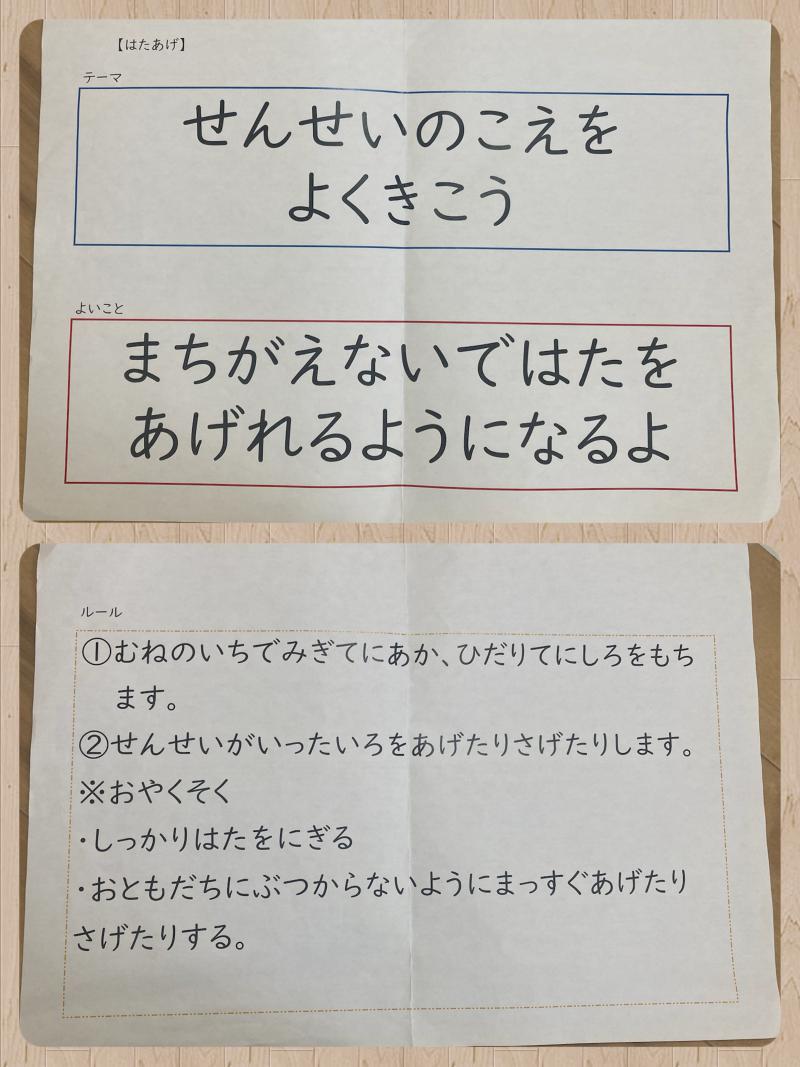 【はたあげ】
テーマ
せんせいのこえを
よくきこう
よいこと
まちがえないではたを
あげれるようになるよ
ルール
①むねのいちでみぎてにあか、ひだりてにしろをもち
ます。
②せんせいがいったいろをあげたりさげたりします。
※おやくそく
・しっかりはたをにぎる
・おともだちにぶつからないようにまっすぐあげたり
さげたりする。